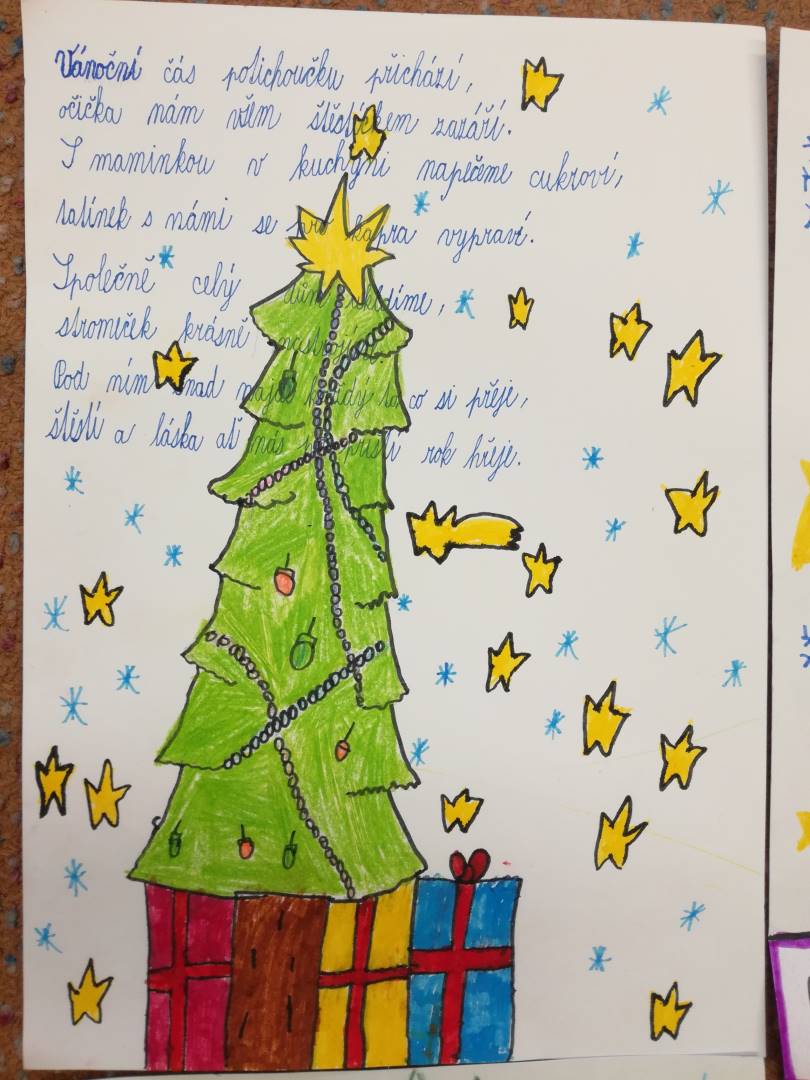 Vánoční čás potichoučku přichází,
očička nám všem štěstíčkem zazáří.
S maminkou v kuchyni napečeme cukroví,
tatínek s námi se pro kapra vypraví.
Společně celý dům uklidíme,
stromeček krásně nastrojíme
Pod ním snad najde každý to co si přeje,
štěstí a láska ať nás příští rok hřeje.